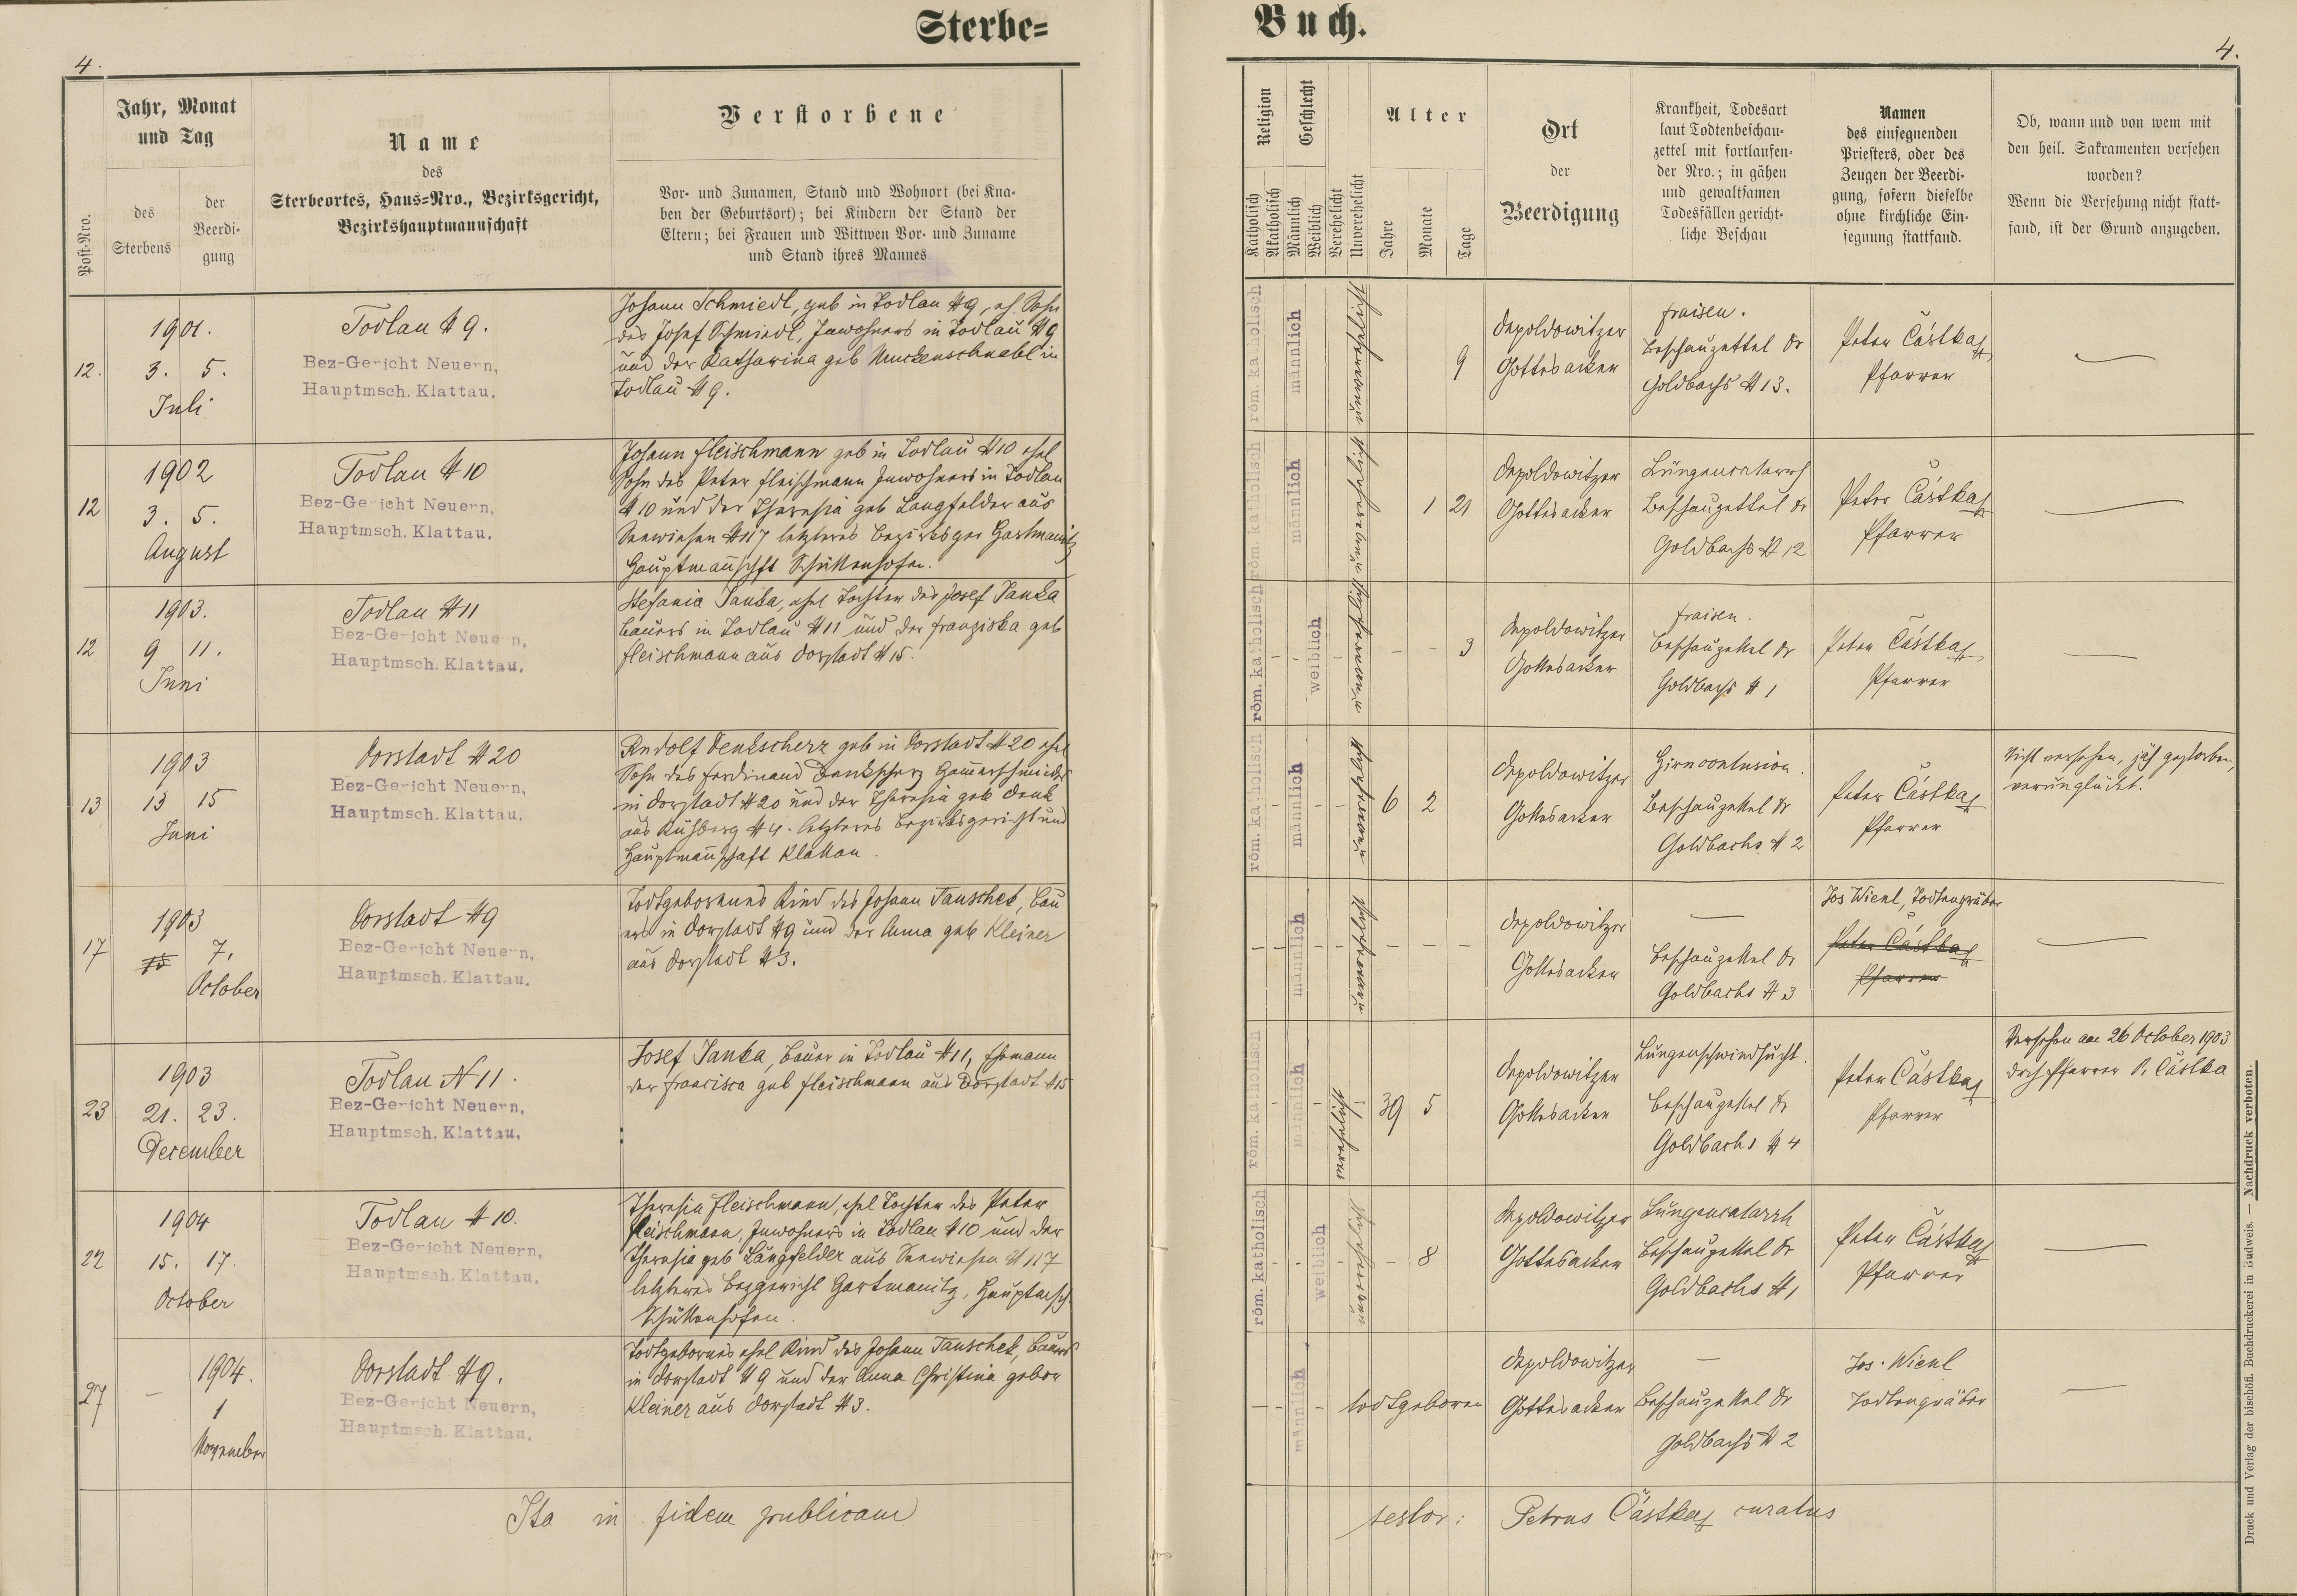 Sterbe=
Buch.
4.
4.
Jahr, Monat
und Tag
Post-Nro.
des
Sterbens
der
Beerdi-
gung
Name
des
Sterbeortes, Haus-Nro., Bezirksgericht,
Bezirkshauptmannschaft
Verstorbene
Vor- und Zunamen, Stand und Wohnort (bei Kna-
ben der Geburtsort); bei Kindern der Stand der
Eltern; bei Frauen und Wittwen Vor- und Zuname
und Stand ihres Mannes
Religion
Geschlecht
Katholisch
Akatholisch
Männlich
Weiblich
Verehelicht
Unverehelicht
Alter
Jahre
Monate
Tage
Ort
der
Beerdigung
Krankheit, Todesart
laut Todtenbeschau-
zettel mit fortlaufen-
der Nro.; in gähen
und gewaltsamen
Todesfällen gericht-
liche Beschau
Namen
des einsegnenden
Priesters, oder des
Zeugen der Beerdi-
gung, sofern dieselbe
ohne kirchliche Ein-
segnung stattfand.
Ob, wann und von wem mit
den heil. Sakramenten versehen
worden?
Wenn die Versehung nicht statt-
fand, ist der Grund anzugeben.
12.
1901.
3. 5.
Juli
Todlau # 9.
Bez-Gericht Neuern,
Hauptmsch. Klattau.
Johann Schmiedl, geb in Todlau #9, eh Sohn
des Josef Schmiedl, Inwohners in Todlau #9
und der Katharina geb Muckenschnabl in
Todlau #9.
röm. katholisch
männlich
unverehelicht
9
Depoldowitzer
Gottesacker
Fraisen.
Beschauzettel Dr
Goldbachs #13.
Peter Částka
Pfarrer
12
1902
3. 5.
August
Todlau #10
Bez-Gericht Neuern,
Hauptmsch. Klattau.
Johann Fleischmann geb in Todlau #10 ehel
Sohn des Peter Fleischmann Inwohners in Todlau
#10 und der Theresia geb Langfelder aus
Seewiesen #117 letzteres Bezirksger Hartmanitz
Hauptmannschft Schüttenhofen.
röm. katholisch
männlich
unverehelicht
1 21
Depoldowitzer
Gottesacker
Lungencatarrh
Beschauzettel Dr
Goldbachs #12
Peter Částka
Pfarrer
12
1903.
9 11.
Juni
Todlau #11
Bez-Gericht Neuern,
Hauptmsch. Klattau.
Stefania Janka, ehel Tochter des Josef Janka
Bauers in Todlau #11 und der Franziska geb
Fleischmann aus Dorstadt #15.
röm. katholisch
weiblich
unverehelicht
3
Depoldowitzer
Gottesacker
Fraisen.
Beschauzettel Dr
Goldbachs #1
Peter Částka
Pfarrer
13
1903
13 15
Juni
Dorstadt #20
Bez-Gericht Neuern,
Hauptmsch. Klattau.
Rudolf Denkscherz geb in Dorstadt #20 ehel
Sohn des Ferdinand Denkscherz Hammerschmiedes
in Dorstadt #20 und der Theresia geb Denk
aus Kühberg #4. letzteres Bezirksgericht und
Hauptmannschaft Klattau.
röm. katholisch
männlich
unverehelicht
6 2
Depoldowitzer
Gottesacker
Hirncontusion.
Beschauzettel Dr
Goldbachs #2
Peter Částka
Pfarrer
Nicht versehen, jäh gestorben,
verunglückt.
17
1903
7.
October
Dorstadt #9
Bez-Gericht Neuern,
Hauptmsch. Klattau.
Todtgeborenes Kind des Johann Tauschek, Bau
ers in Dorstadt #9 und der Anna geb Kleiner
aus Dorstadt #3.
männlich
unverehelicht
Depoldowitzer
Gottesacker
Beschauzettel Dr
Goldbachs #3
Jos Wienl, Todtengräber
Peter Částka
Pfarrer
23
1903
21. 23.
December
Todlau N 11.
Bez-Gericht Neuern,
Hauptmsch. Klattau.
Josef Janka, Bauer in Todlau #11, Ehemann
der Francisca geb Fleischmann aus Dorstadt #15
röm. katholisch
männlich
verehelicht
39 5
Depoldowitzer
Gottesacker
Lungenschwindsucht.
Beschauzettel Dr
Goldbachs #4
Peter Částka
Pfarrer
Versehen am 26 October 1903
drch Pfarrer P. Částka
22
1904
15. 17.
October
Todlau #10.
Bez-Gericht Neuern,
Hauptmsch. Klattau.
Theresia Fleischmann, ehel Tochter des Peter
Fleischmann, Inwohners in Todlau #10 und der
Theresia geb Langfelder aus Seewiesen #117
letzteres Bezgericht Hartmanitz, Hauptmsch
Schüttenhofen.
röm. katholisch
weiblich
unverehelicht
8
Depoldowitzer
Gottesacker
Lungencatarrh
Beschauzettel Dr
Goldbachs #1
Peter Částka
Pfarrer
27
1904.
1
November
Dorstadt #9.
Bez-Gericht Neuern,
Hauptmsch. Klattau.
Todtgebornes ehel Kind des Johann Tauschek, Bauers
in Dorstadt #9 und der Anna Christina gebor
Kleiner aus Dorstadt #3.
männlich
todtgeboren
Depoldowitzer
Gottesacker
Beschauzettel Dr
Goldbachs #2
Jos. Wienl
Todtengräber
Ita in fidem publicam
testor: Petrus Částka curatus
Druck und Verlag der bischöfl. Buchdruckerei in Budweis. — Nachdruck verboten.